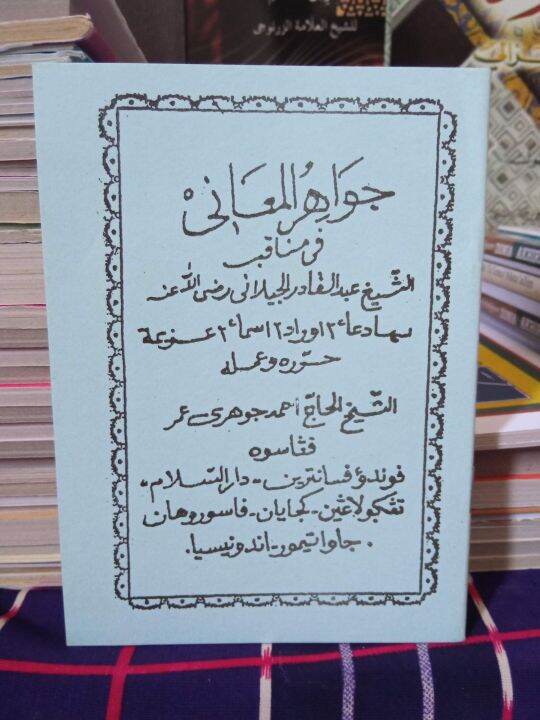 للشيخ العلامة الزرنوجي
جَوَاهِرُ الْمَعَانِي
في مناقب
الشّيخ عبد القادر الجيلاني رضي الله عنه
بها دعا٢ اوراد٢ اسما٢ عزعة
حرّره وعمله
الشّيخ الحاجّ أحمد جوهري عمر
فڠاسوه
فوندؤ فسانترين - دار السّلام -
تڠكولاڠين - كجايان - فاسوروهان
. جاوا تيمور - اندونيسيا .